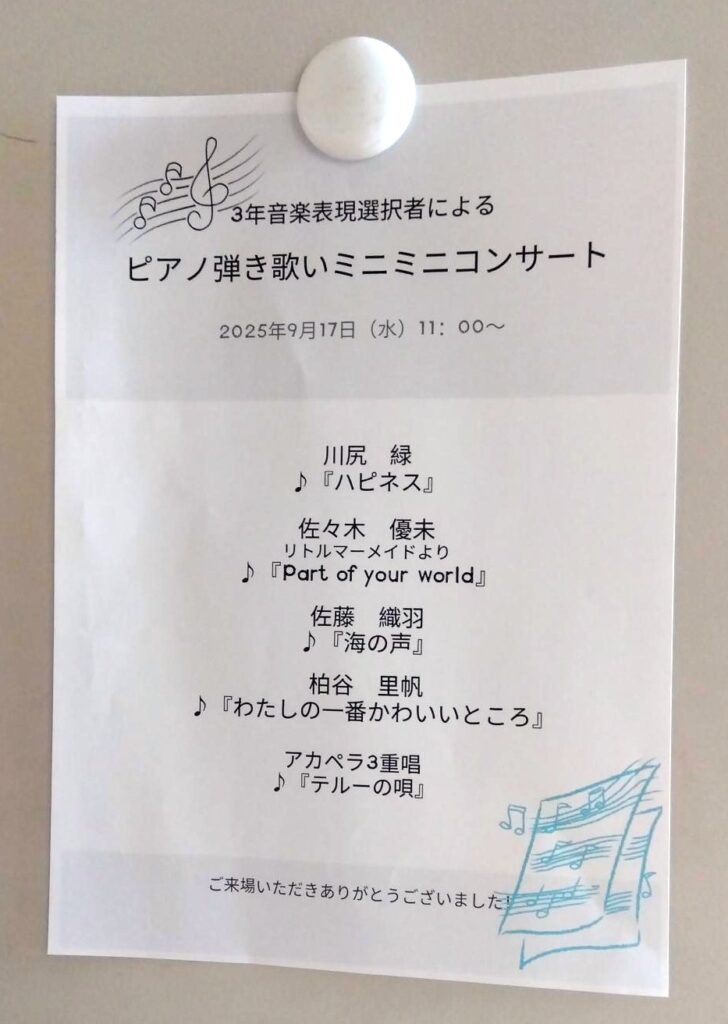 3年音楽表現選択者による
ピアノ弾き歌いミニミニコンサート
2025年9月17日（水）11：00～
川尻　緑
♪『ハピネス』
佐々木　優未
リトルマーメイドより
♪『Part of your world』
佐藤　織羽
♪『海の声』
柏谷　里帆
♪『わたしの一番かわいいところ』
アカペラ3重唱
♪『テルーの唄』
ご来場いただきありがとうございました!